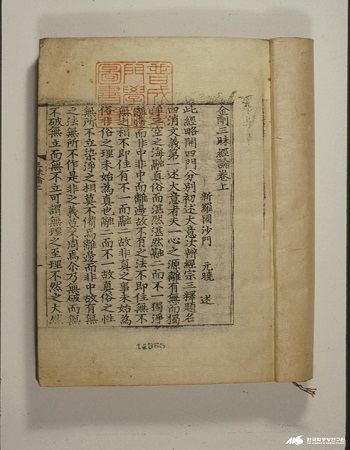 金剛三昧經論卷上
新羅國沙門 元曉 述
此經略開四門分別初述大意次辨經宗三釋題名
四消文義第一述大意者夫一心之源離有無而獨
淨三空之海融真俗而湛然湛然融二而不一獨淨
離邊而非中非中而離邊故不有之法不即住無不
無之相不即住有不一而融二故非真之事未始為
俗非俗之理未始為真也融二而不一故真俗之性
無所不立染淨之相莫不備焉離邊而非中故有無
之法無所不作是非之義莫不周焉尒乃無破而無
不破無立而無不立可謂無理之至理不然之大然
한국학중앙연구원